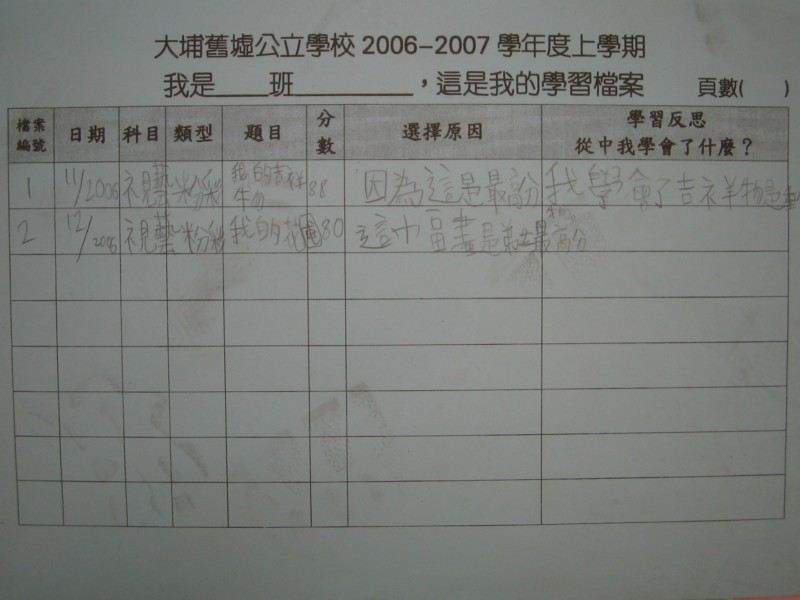 大埔舊墟公立學校 2006-2007 學年度上學期
我是____班________,這是我的學習檔案 頁數( )
檔案編號 日期 科目 類型 題目 分數 選擇原因 學習反思 從中我學會了什麼?
1 11/2006 視藝 粉彩 我的吉祥 88 因為這是最高分 我學會了吉祥物是
2 12/2006 視藝 粉彩 我的花園 80 這十畐畫是 最高分